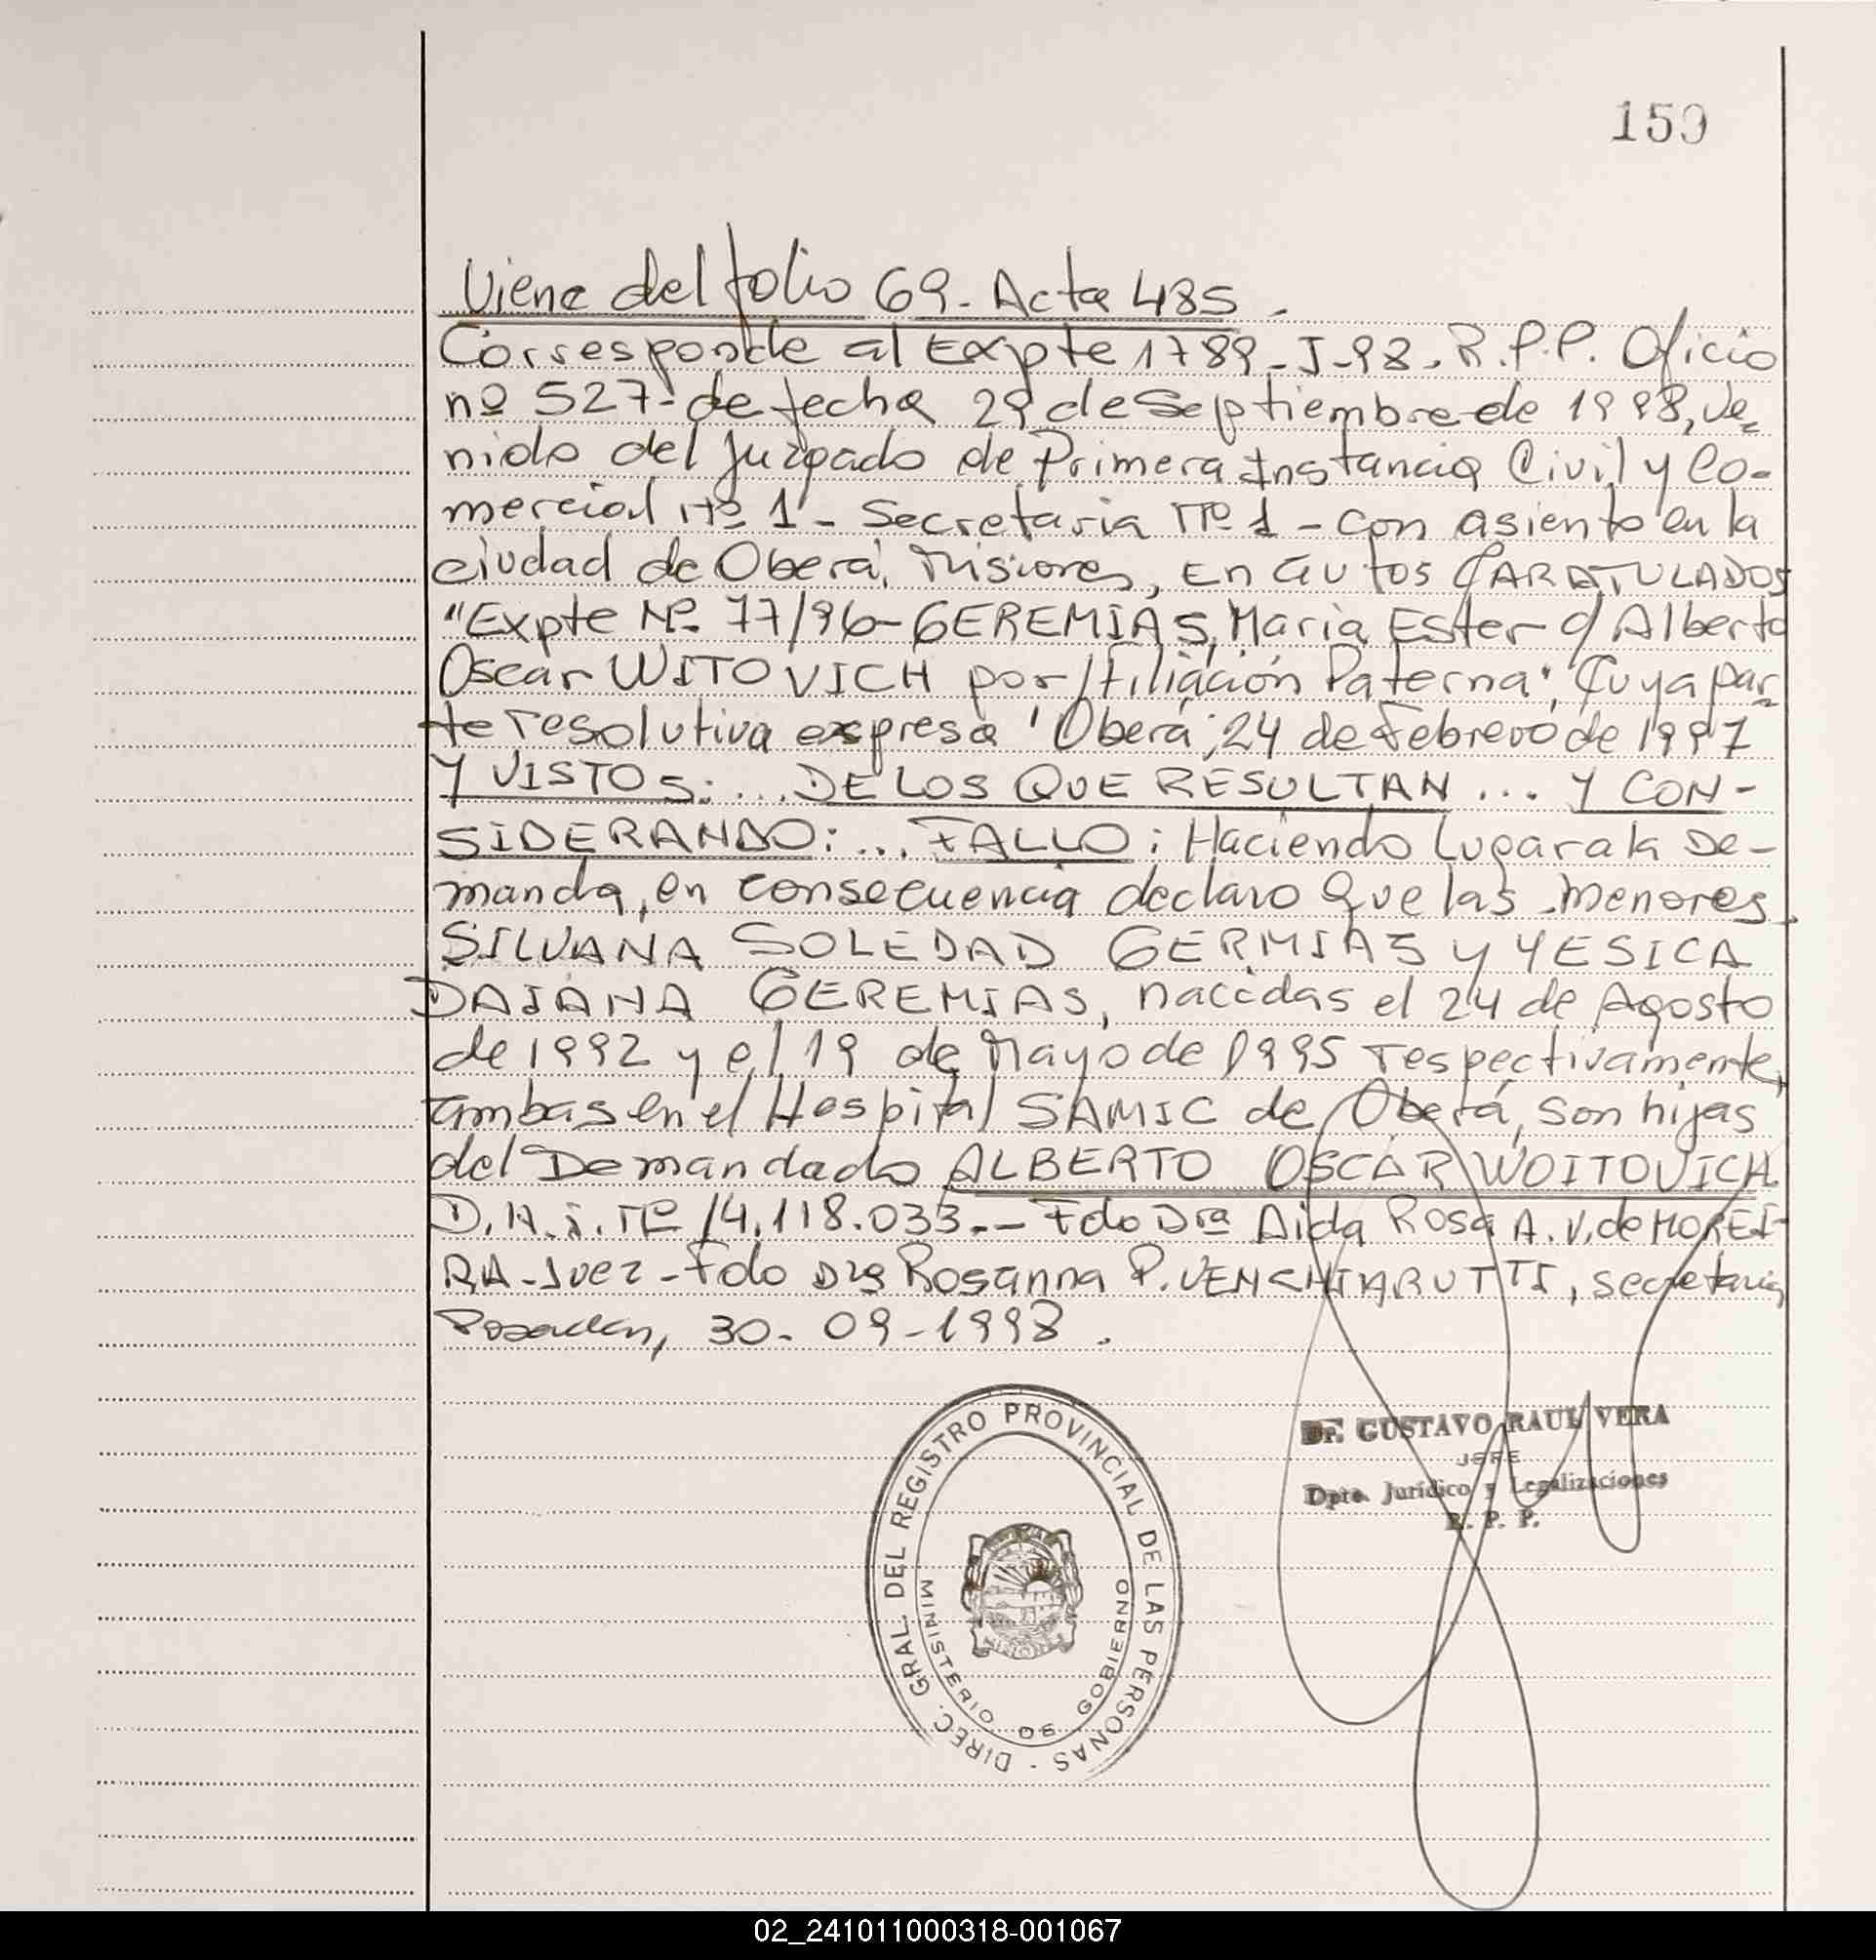 159
Viene del folio 69- Acta 485.
Corresponde al Expte 1789-J-98. R.P.P. Oficio
nº 527- de fecha 29 de Septiembre de 1998, Ve-
nido del Juzgado de Primera Instancia Civil y Co-
mercial Nº 1 - Secretaria Nº 1 - con asiento en la
ciudad de Oberá, Misiones, En autos CARATULADOS
"Expte Nº 77/96- GEREMIAS, Maria Ester c/ Alberto
Oscar WITOVICH por/Filiación Paterna". Cuya par-
te resolutiva expresa "Oberá, 24 de Febrero de 1997
Y VISTOS: ... DE LOS QUE RESULTAN ... Y CON-
SIDERANDO: ... FALLO: Haciendo lugar a la De-
manda, en consecuencia declaro Que las Menores
SILVANA SOLEDAD GERMIAS y YESICA
DAIANA GEREMIAS, nacidas el 24 de Agosto
de 1992 y el 19 de Mayo de 1995 respectivamente,
ambas en el Hospital SAMIC de Oberá, son hijas
del Demandado ALBERTO OSCAR WOITOVICH
D.N.I. Nº 14.118.033.- Fdo Dra Aida Rosa A. V. de MOREI-
RA - Juez - Fdo Dra Rosanna P. VENCHIARUTTI, Secretaria
Posadas, 30-09-1998.
DIREC. GRAL. DEL REGISTRO PROVINCIAL DE LAS PERSONAS -
MINISTERIO DE GOBIERNO
Dr. GUSTAVO RAUL VERA
JEFE
Dpto. Jurídico y Legalizaciones
R. P. P.
02_241011000318-001067